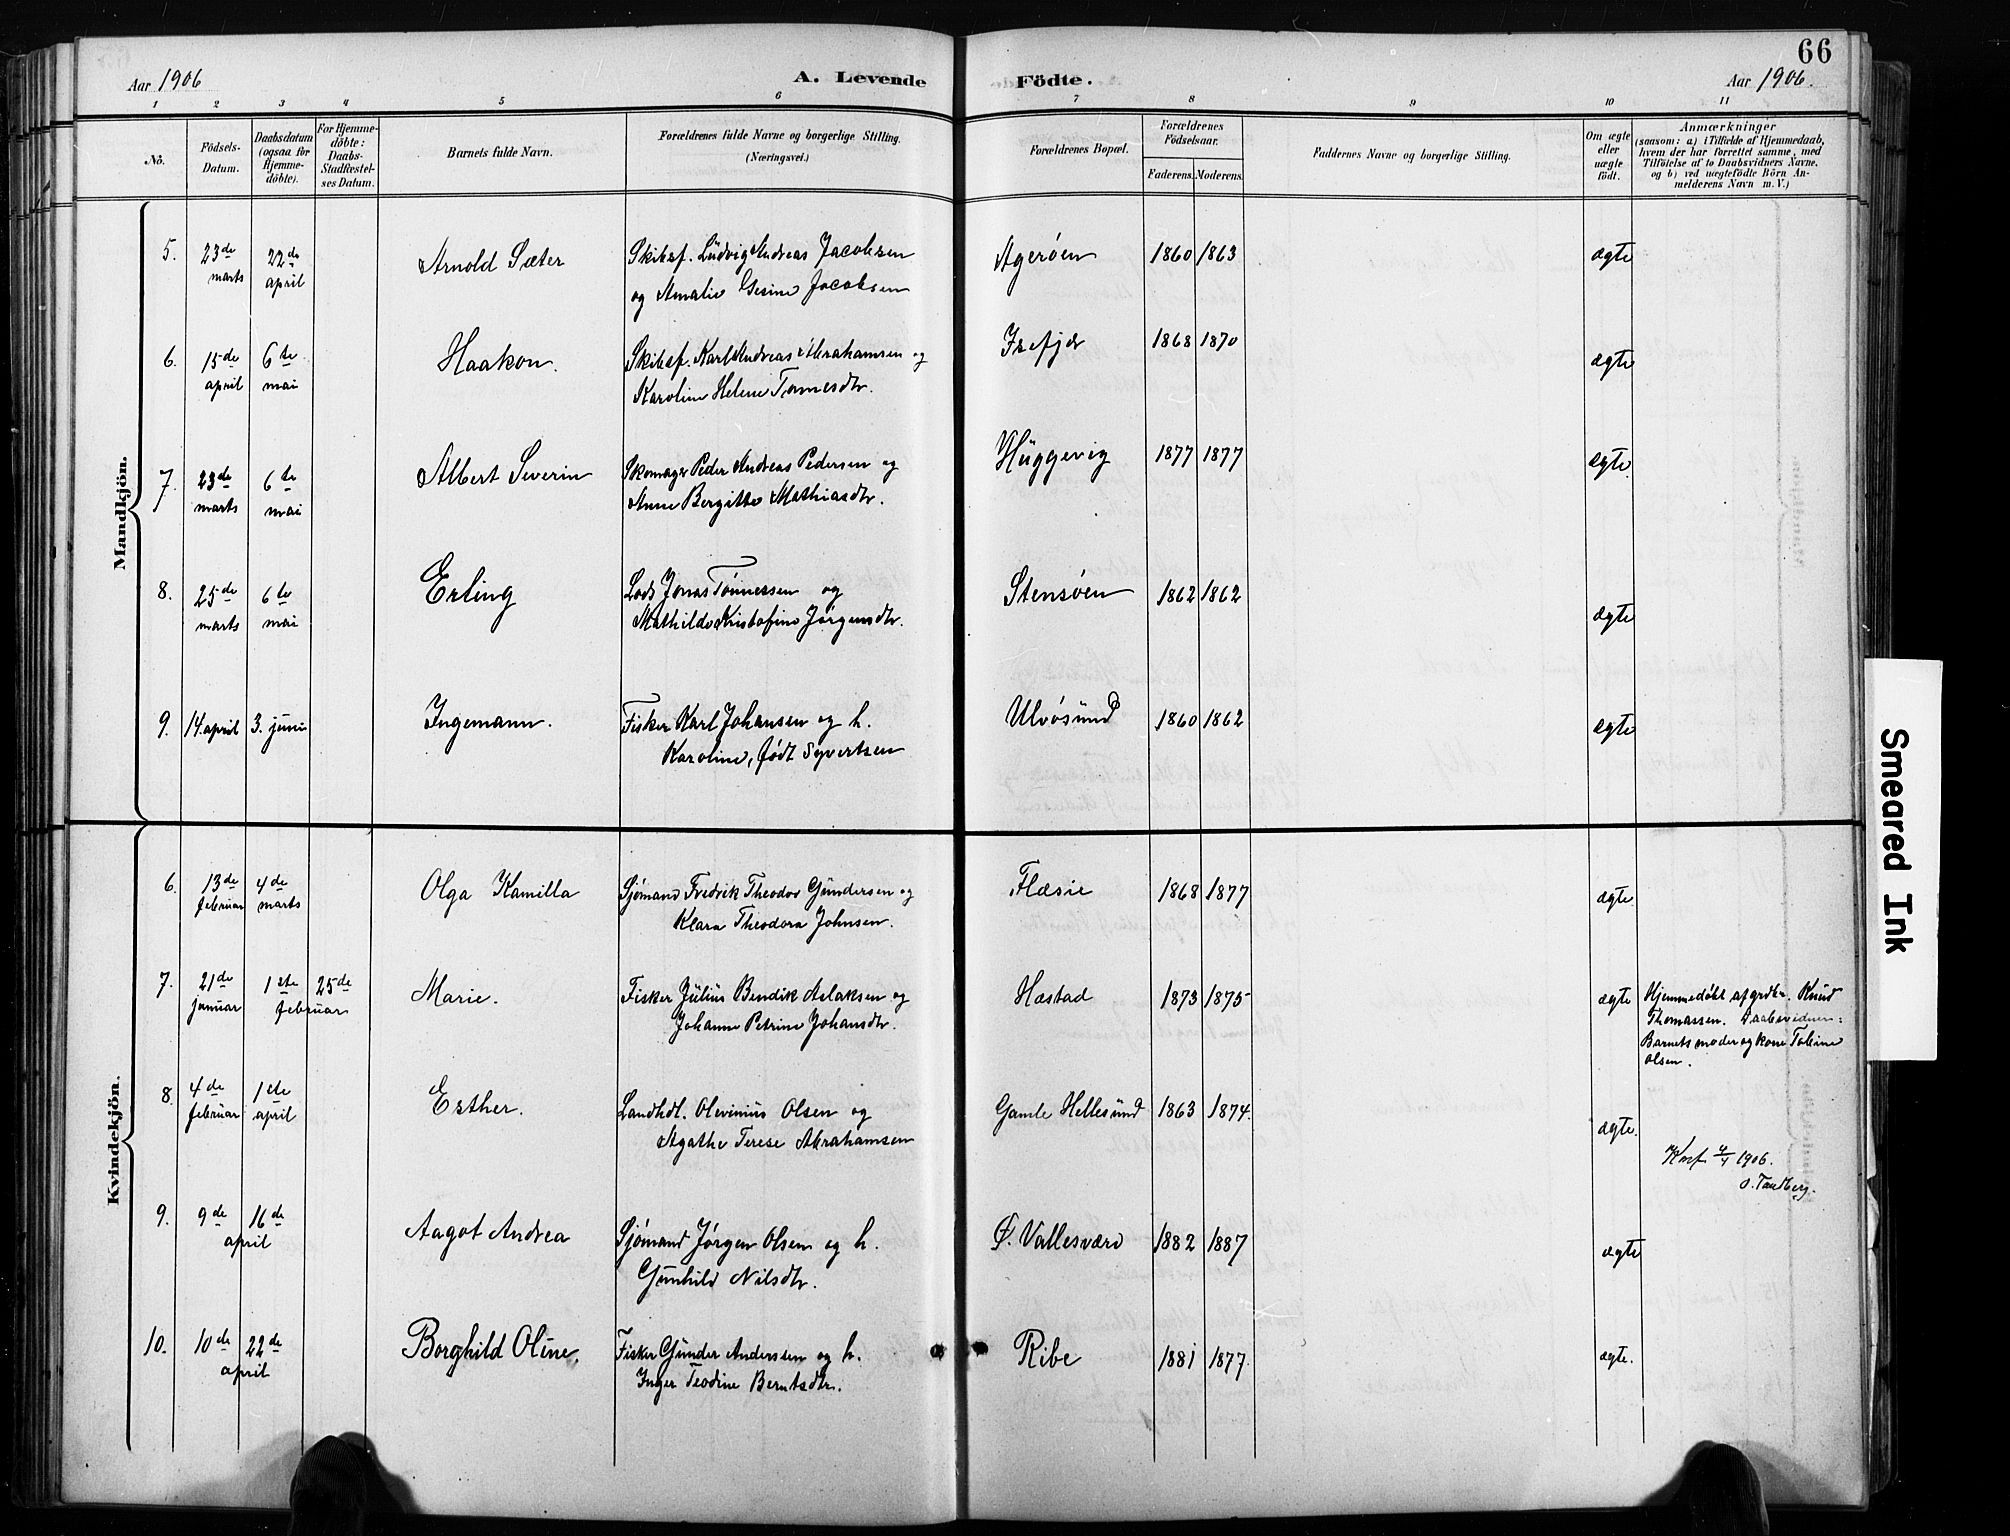 66
Aar 1906
A. Levende
Födte.
Aar 1906.
1 2 3 4 5 6 7 8 9 10 11
No.
Födsels-
Datum.
Daabsdatum
(ogsaa för
Hjemme-
döbte).
For Hjemme-
döbte:
Daabs-
Stadfæstel-
ses Datum.
Barnets fulde Navn.
Forældrenes fulde Navne og borgerlige Stilling.
(Næringsvei.)
Forældrenes Bopæl.
Forældrenes
Födselsaar.
Faderens. Moderens.
Faddernes Navne og borgerlige Stilling.
Om ægte
eller
uægte
födt.
Anmærkninger
(saasom: a) i Tilfælde af Hjemmedaab,
hvem der har forrettet samme, med
Tilföielse af to Daabsvidners Navne,
og b) ved uægtefödte Börn An-
melderens Navn m. V.)
Mandkjön.
5. 23de marts 22de april Arnold Sæter Skibsf. Ludvig Andreas Jacobsen Agerøen 1860 1863 ægte
og Amalie Gesine Jacobsen
6. 15de april 6te mai Haakon. Skibsf. Karl Andreas Abrahamsen og 1868 1870 ægte
Karoline Helene Tomesdtr.
7. 23de marts 6te mai Albert Severin Skomager Peder Andreas Pedersen og Huggevig 1877 1877 ægte
Anne Bergitte Mathiasdtr.
8. 25de marts 6te mai Erling Lods Jonas Tönnessen og Stensøen 1862 1862 ægte
Mathilde Kristofine Jörgensdtr.
9. 14. april 3. juni Ingemann. Fisker Karl Johansen og h. Ulvøsund 1860 1862 ægte
Karoline, født Syvertsen
Kvindekjön.
6. 13de februar 4de marts Olga Kamilla Sjømand Fredrik Theodor Gundersen og Flæsie 1868 1877 ægte.
Klara Theodora Johnsen.
7. 21de januar 1ste 25de februar Marie. Fisker Julius Bendik Aslaksen og Hæstad 1873 1875 ægte Hjemmedøbt af grdbr. Knud
Johanne Petrine Johansdtr. Thomassen. Daabsvidner:
Barnets moder og kone Tobine
Olsen.
8. 4de februar 1ste april Esther. Landhdl. Olevinius Olsen og Gamle Hellesund 1863 1874. ægte.
Agathe Terese Abrahamsen
Knf. 4/4 1906.
O. Tandberg.
9. 9de 16de april Aagot Andrea Sjømand Jørgen Olsen og h. Ø. Vallesværd 1882 1887 ægte
Gunhild Nilsdtr.
10. 10de 22de april Borghild Oline. Fisker Gunder Anderssen og h. Ribe 1881 1877. ægte.
Inger Teodine Berntsdtr.
Smeared Ink